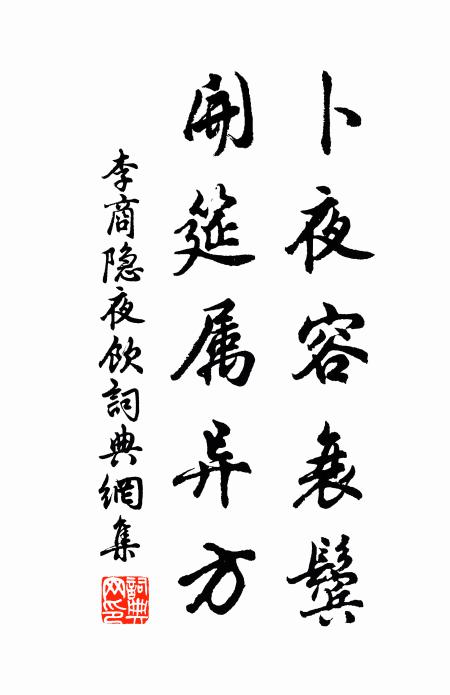 卜夜容衰鬓
開筵属异方
李商隐夜飲詞典網集
詞典網印